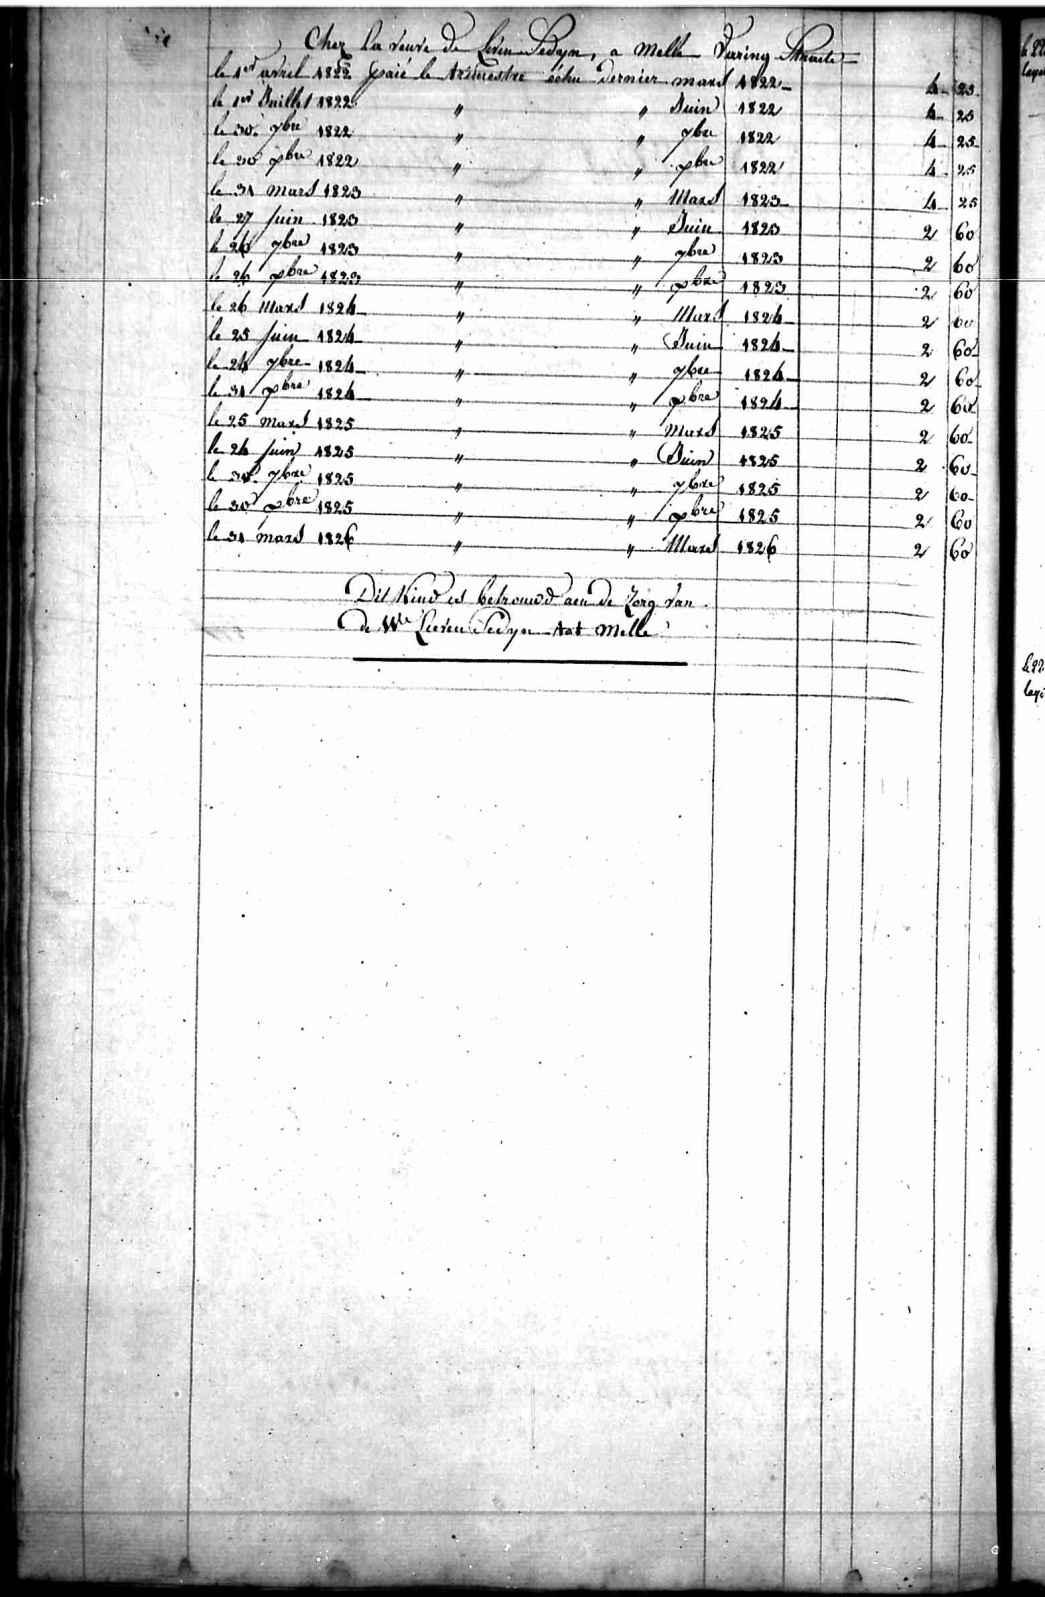 Chez la veuve de Livin Pedyn, a Melle Varing Straete
le 1er avril 1822 paié le trimestre échu dernier mars 1822 4 25
le 1er Juillet 1822 " " Juin 1822 4 25
le 30 7bre 1822 " " 7bre 1822 4 25
le 30 xbre 1822 " " xbre 1822 4 25
le 31 mars 1823 " " Mars 1823 4 25
le 27 Juin 1823 " " Juin 1823 2 60
le 26 7bre 1823 " " 7bre 1823 2 60
le 26 xbre 1823 " " xbre 1823 2 60
le 26 Mars 1824 " " Mars 1824 2 60
le 25 Juin 1824 " " Juin 1824 2 60
le 24 7bre 1824 " " 7bre 1824 2 60
le 31 xbre 1824 " " xbre 1824 2 60
le 25 mars 1825 " " Mars 1825 2 60
le 24 Juin 1825 " " Juin 1825 2 60
le 30 7bre 1825 " " 7bre 1825 2 60
le 30 xbre 1825 " " xbre 1825 2 60
le 31 mars 1826 " " Mars 1826 2 60
Dit Kind is betrouwd aen de Zorg van
de We Lieven Pedyn tot Melle